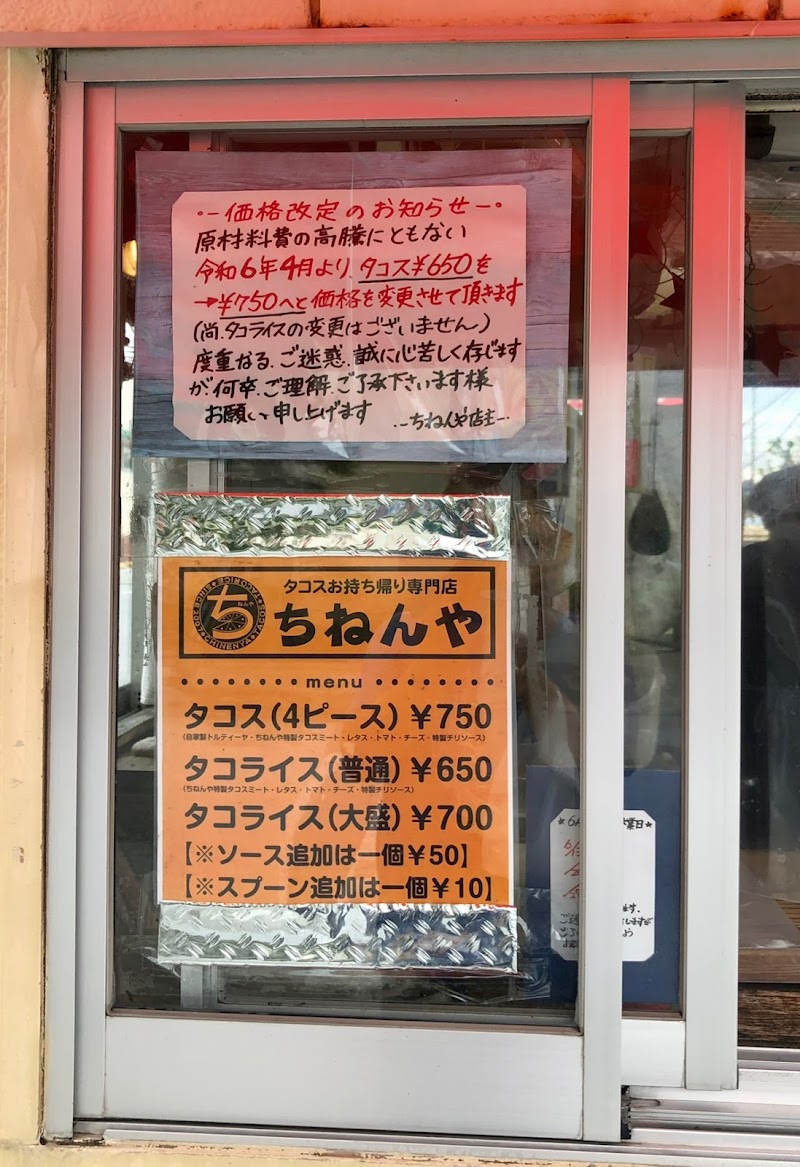 ・－価格改定のお知らせ－・
原材料費の高騰にともない
令和6年4月より、タコス¥650を
→¥750へと価格を変更させて頂きます
(尚、タコライスの変更はございません)
度重なる、ご迷惑、誠に心苦しく存じます
が、何卒、ご理解、ご了承下さいます様
お願い申し上げます
－ちねんや店主－
タコスお持ち帰り専門店
ちねんや
ち
ちねんや
TACOS
TACORICE
SINCE 2007
CHINENYA
menu
タコス(4ピース)¥750
(自家製トルティーヤ・ちねんや特製タコスミート・レタス・トマト・チーズ・特製チリソース)
タコライス(普通)¥650
(ちねんや特製タコスミート・レタス・トマト・チーズ・特製チリソース)
タコライス(大盛)¥700
【※ソース追加は一個¥50】
【※スプーン追加は一個¥10】
業日*